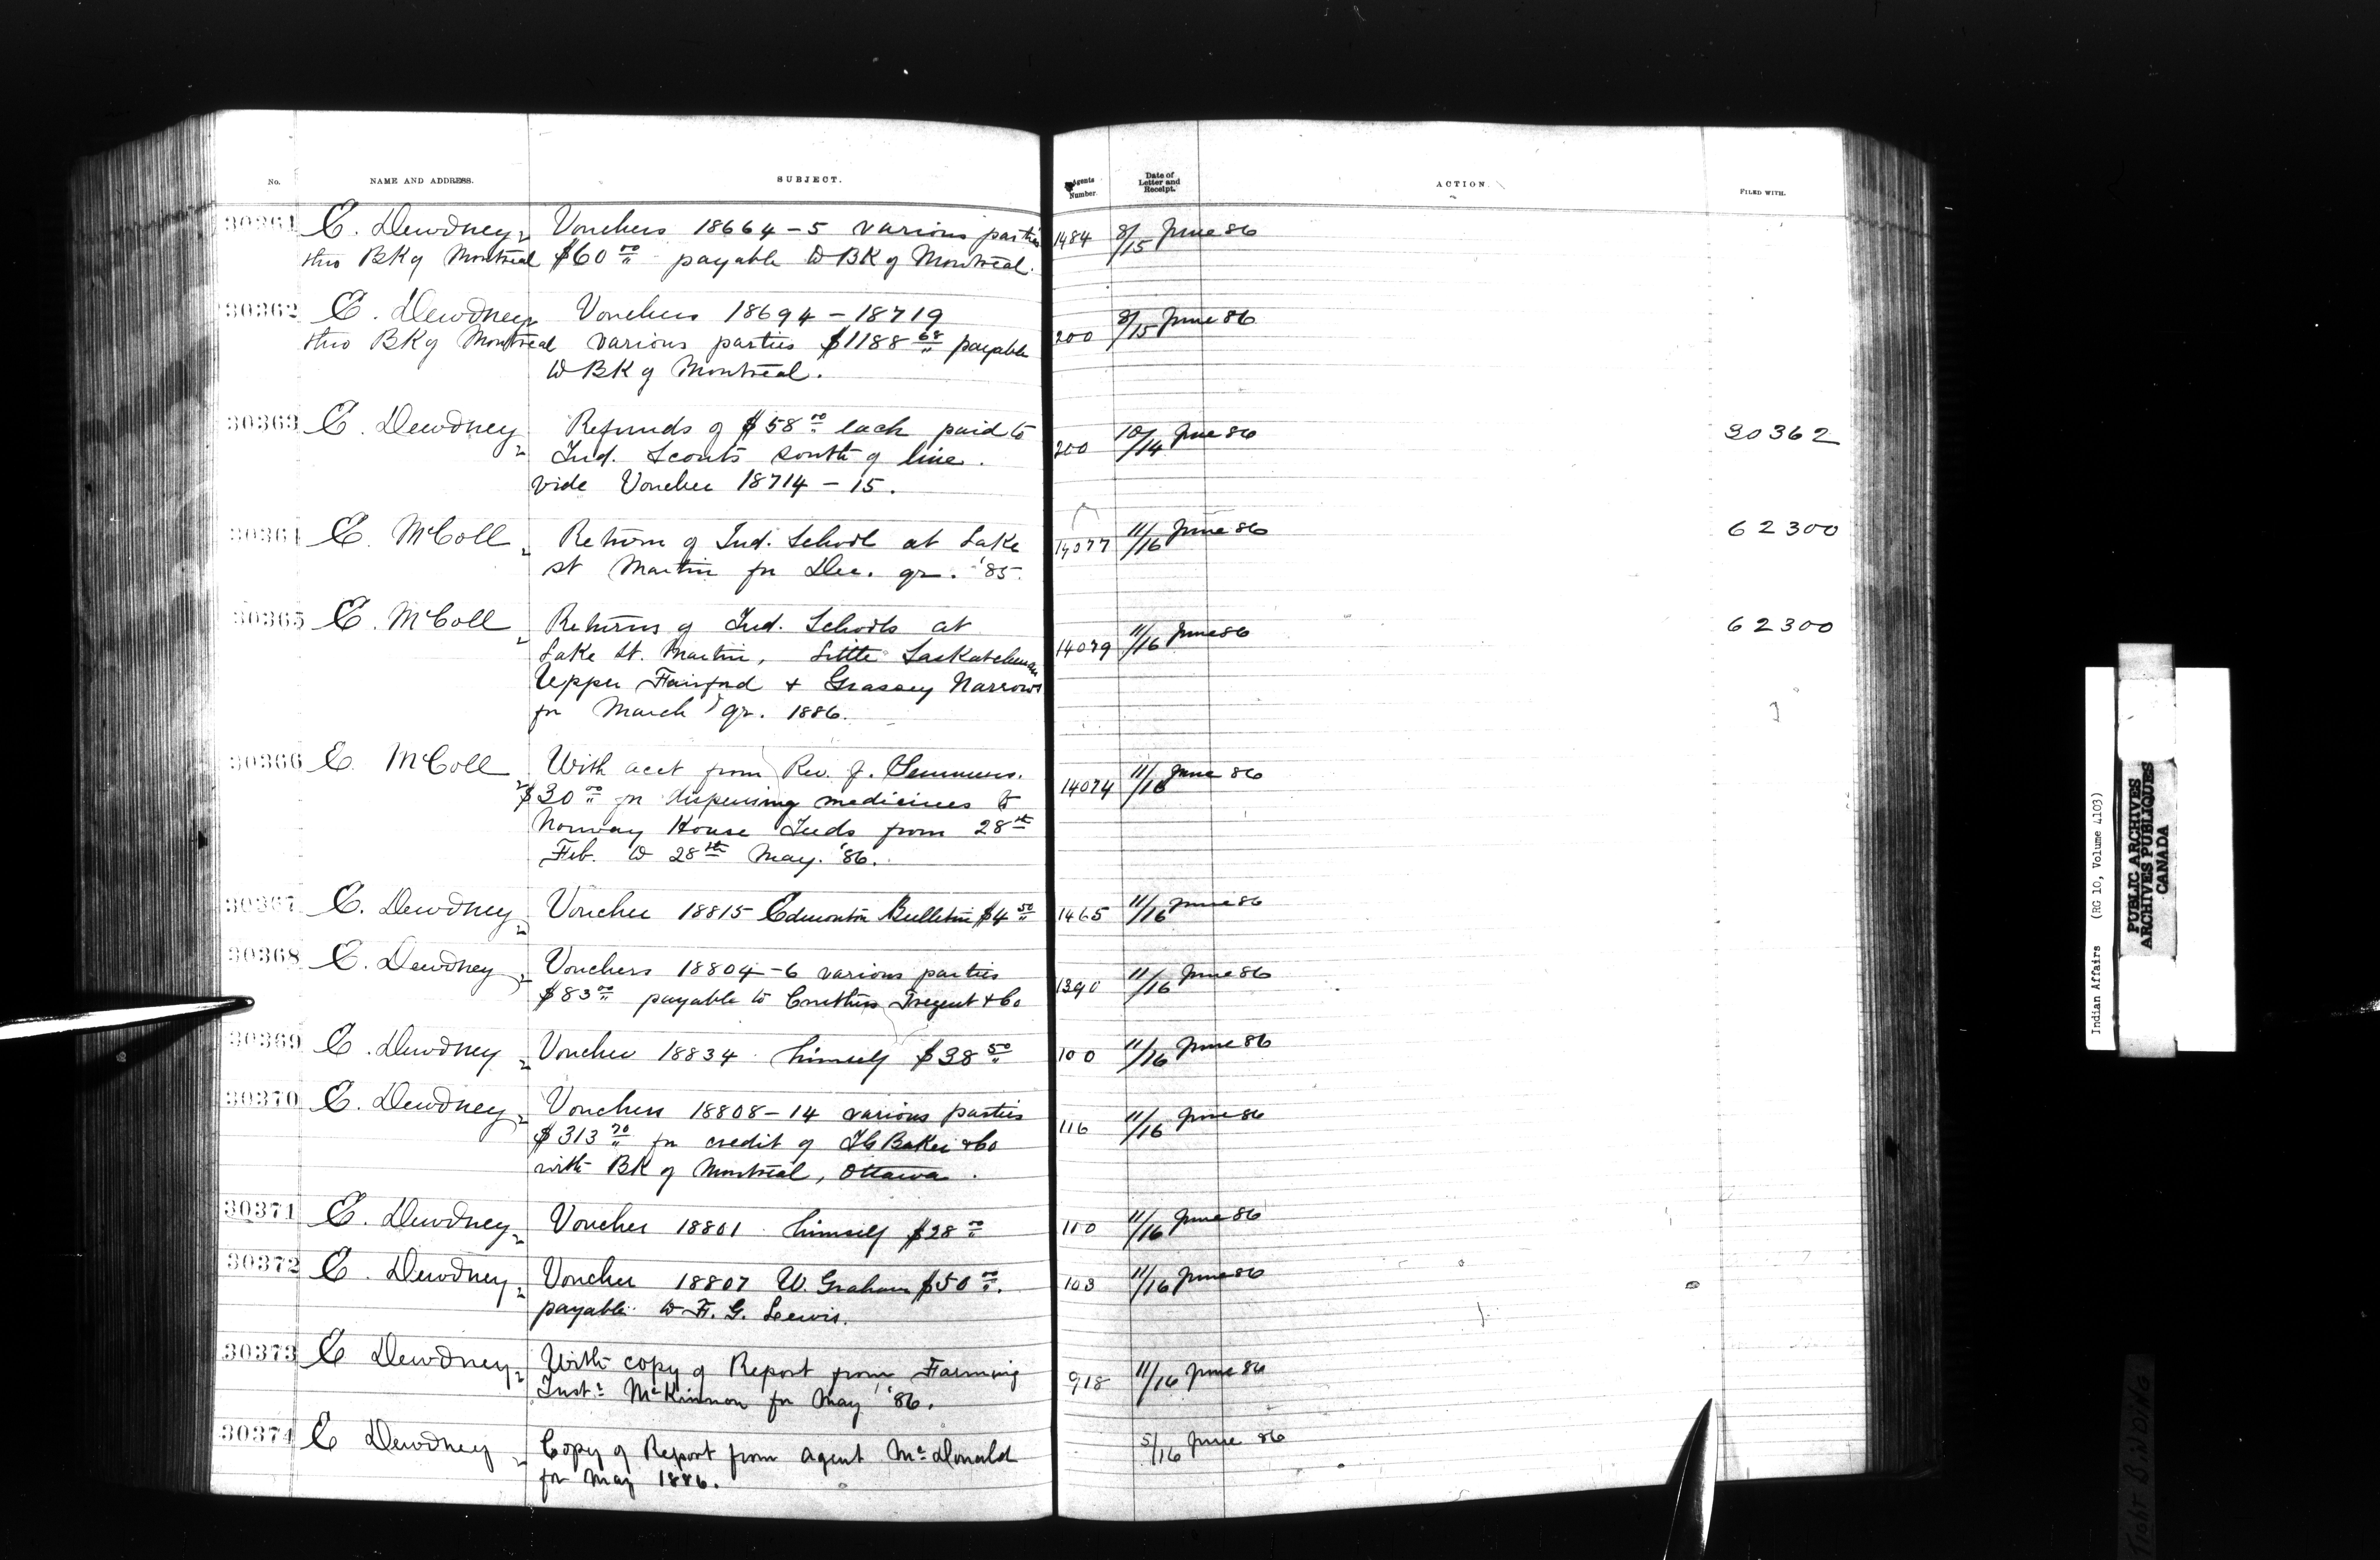 No. NAME AND ADDRESS. SUBJECT. Agents Number. Date of Letter and Receipt. ACTION. FILED WITH.
30361 E. Dewdney Vouchers 18664-5 various parties 1484 8/15 June 86
thro BK of Montreal $60 00 payable to BK of Montreal.
30362 E. Dewdney Vouchers 18694 - 18719 200 8/15 June 86
thro BK of Montreal various parties $1188 68 payable
to BK of Montreal.
30363 E. Dewdney Refunds of $58 00 each paid to 200 10/14 June 86 30362
Ind. Scouts south of line.
vide Voucher 18714 - 15.
30364 E. McColl Return of Ind. School at Lake 14077 11/16 June 86 62300
St Martin for Dec. qr. '85.
30365 E. McColl Returns of Ind. Schools at 14079 11/16 June 86 62300
Lake St. Martin, Little Saskatchewan
Upper Fairford + Grassey Narrows
for March qr. 1886.
30366 E. McColl With acct from Rev. J. Semmens. 14074 11/16 June 86
$30 00 for dispensing medicines to
Norway House Inds from 28th
Feb. to 28th May. '86.
30367 E. Dewdney Voucher 18815 Edmonton Bulletin $4 50 1465 11/16 June 86
30368 E. Dewdney Vouchers 18804-6 various parties 1390 11/16 June 86
$83 00 payable to Tregent & Co
30369 E. Dewdney Voucher 18834 himself $38 50 100 11/16 June 86
30370 E. Dewdney Vouchers 18808-14 various parties 116 11/16 June 86
$313 70 for credit of I G Baker & Co
with BK of Montreal, Ottawa.
30371 E. Dewdney Voucher 18801 himself $28 00 110 11/16 June 86
30372 E. Dewdney Voucher 18807 W. Graham $50 00. 103 11/16 June 86
payable to F. G. Lewis.
30373 E Dewdney With copy of Report from Farming 918 11/16 June 86
Instr McKinnon for May '86.
30374 E Dewdney Copy of Report from Agent McDonald 5/16 June 86
for May 1886.
Indian Affairs (RG 10, Volume 4103)
PUBLIC ARCHIVES
ARCHIVES PUBLIQUES
CANADA
TIGHT BINDING